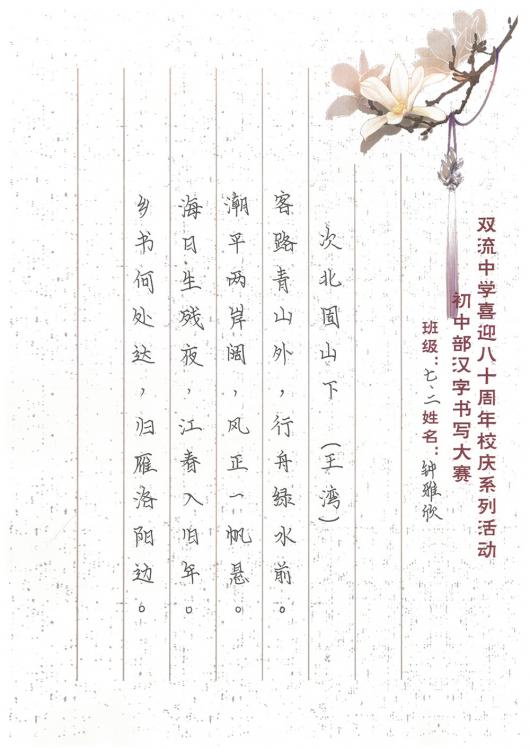 双流中学喜迎八十周年校庆系列活动
初中部汉字书写大赛
班级：七、二姓名：钟雅欣
次北固山下（王湾）
客路青山外，行舟绿水前。
潮平两岸阔，风正一帆悬。
海日生残夜，江春入旧年。
乡书何处达，归雁洛阳边。